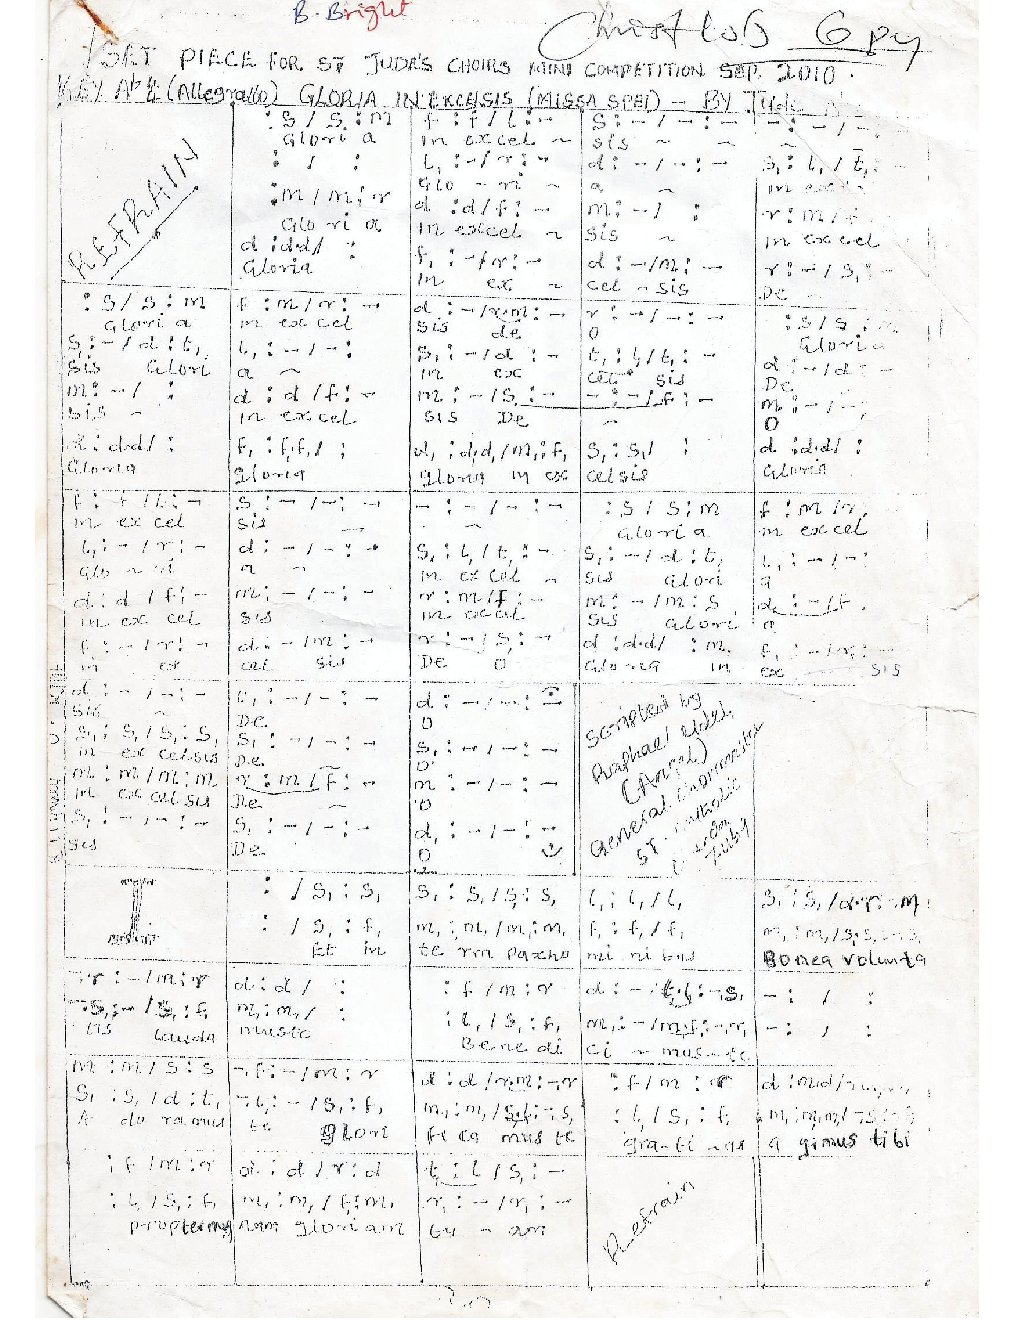 B. Bright
Copy
SET PIECE FOR ST JUDE'S CHOIRS MINI COMPETITION SEP. 2010.
KEY Ab (Allegratto) GLORIA IN EXCELSIS (MISSA SPEI) - BY Jude
REFRAIN
: s / s : m f : f / l : - s : - / - : - - : - / - : -
Glori a in excel ~ sis ~ ~ ~
: / : l, : - / r : - d : - / - : - s, : l, / t, : -
Glo ~ ri ~ a ~ in excel
: m / m : r d : d / f : - m : - / : r : m / f : -
Glo ri a in excel ~ sis ~ in ex cel
d : d.d / : f, : - / r : - d : - / m : - r : - / s, : -
Gloria in ex ~ cel ~ sis De ~
: s / s : m f : m / r : - d : - / r.m : - r : - / - : - : s / s : m
Glori a in ex cel sis de O Gloria
s, : - / d : t, l, : - / - : s, : - / d : - t, : l, / t, : - d : - / d : -
sis Glori a ~ in ex cel sis De
m : - / : d : d / f : - m : - / s, : - - : - / f : - m : - / - :
sis ~ in excel sis De ~ O
d : d.d / : f, : f,.f, / : d, : d,.d, / m, : f, s, : s, / : d : d.d / :
Gloria gloria gloria in ex celsis Gloria
f : f / l : - s : - / - : - - : - / - : - : s / s : m f : m / r
in ex cel sis ~ ~ Glori a in excel
l, : - / r : - d : - / - : - s, : l, / t, : - s, : - / d : t, l, : - / - :
Glo ~ ri a ~ in ex cel ~ sis Glori a
d : d / f : - m : - / - : - r : m / f : - m : - / m : s d : - / f
in ex cel sis in excel sis Glori a
f : - / r : - d : - / m : - r : - / s, : - d : d.d / : m f, : - / r : -
in ex cel sis De O Gloria in ex sis
d : - / - : - t, : - / - : - d : - / - : -
sis ~ De O
s, : s, / s, : s, s, : - / - : - s, : - / - : -
in ex celsis De O
m : m / m : m r : m / f : - m : - / - : -
in excelsis De ~ O
s, : - / - : - s, : - / - : - d, : - / - : -
sis De O
Scripted by
Raphael
(Angel)
General
ST. Catholic
I
: / s, : s, s, : s, / s, : s, l, : l, / l, s, : s, / d.r : - .m
: / s, : f, m, : m, / m, : m, f, : f, / f, m, : m, / s, s, : - s,
Et in te rra paxho mi ni bus Bonea volunta
- r : - / m : r d : d / : : f / m : r d : - / t, l, : - s, - : / :
- s, : - / s, : f, m, : m, / : : l, / s, : f, m, : - / m, f, : - r, - : / :
tis Lauda muste Bene di ci ~ mus te
m : m / s : s - f : - / m : r d : d / r.m : - r : f / m : r d : m.d
s, : s, / d : t, - l, : - / s, : f, m, : m, / s, l, : - s, : l, / s, : f, m, : m, m, / - s, :
A do ramus te glori fi ca mus te grati as a gimus tibi
: f / m : r d : d / r : d t, : l, / s, : -
: l, / s, : f, m, : m, / f, : m, r, : - / r, : -
propter mag nam gloriam tu - am
Refrain